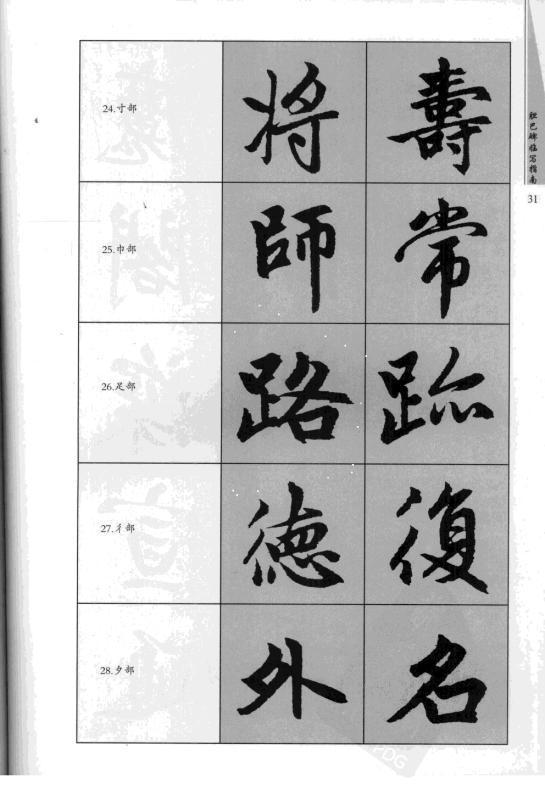 24.寸部 将 壽
25.巾部 師 常
26.足部 路 跡
27.彳部 德 復
28.夕部 外 名
胆巴碑临写指南
31
PDG